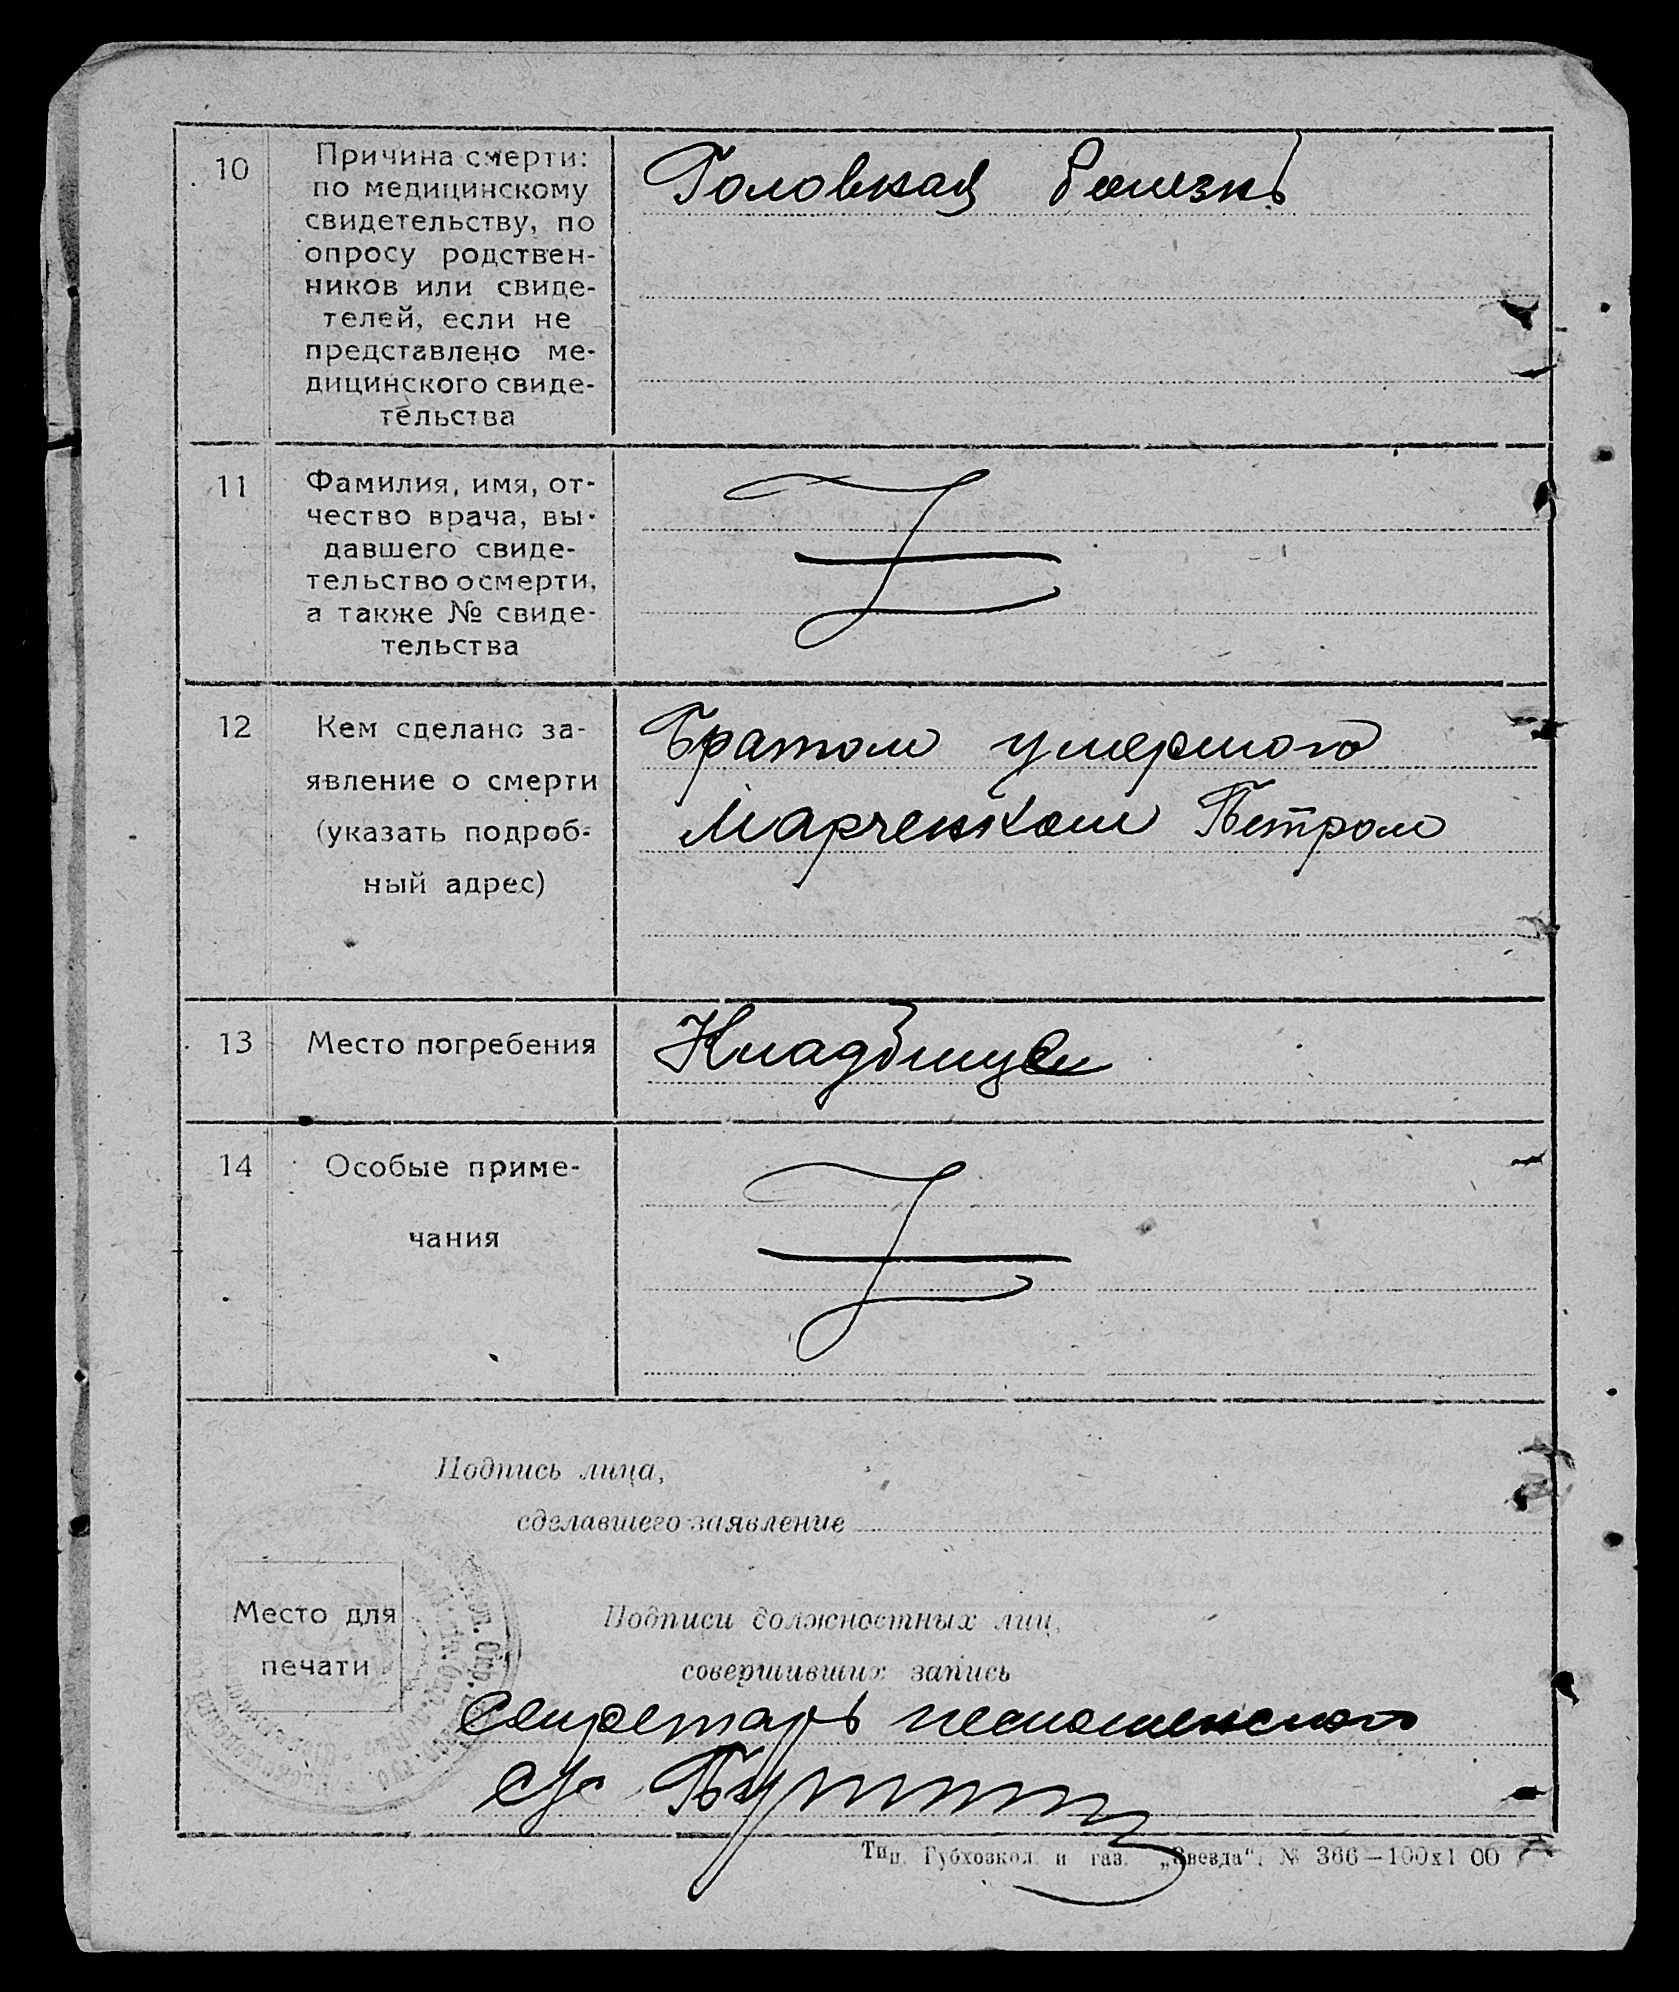 10
Причина смерти:
по медицинскому
свидетельству, по
опросу родствен-
ников или свиде-
телей, если не
представлено ме-
дицинского свиде-
тельства
Головная болезнь
11
Фамилия, имя, от-
чество врача, вы-
давшего свиде-
тельство о смерти,
а также № свиде-
тельства
12
Кем сделано за-
явление о смерти
(указать подроб-
ный адрес)
Братом умершого
Марченком Петром
13
Место погребения
Кладбище
14
Особые приме-
чания
Подпись лица,
сделавшего заявление
Место для
печати
Подписи должностных лиц,
совершивших запись
Секретарь
с/с
Тип. Губхозкол. и газ. „Звезда“. № 366—100х1 00